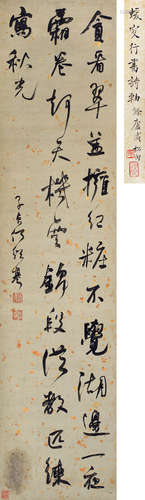 蝯叟行書詩軸
貪看翠蓋擁紅粧不覺湖邊一夜
霜卷却天機雲錦段從教匹練
寫秋光
子貞何紹基